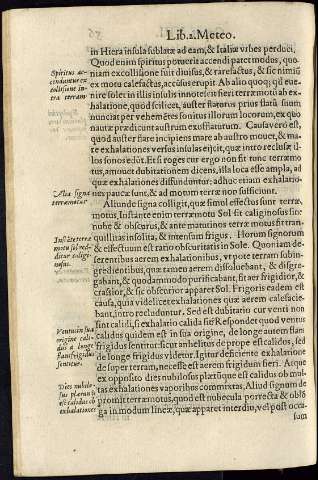 Lib.2. Meteo.
in Hiera insula sublatæ ad eam, & Italiæ vrbes perduci.
Quod enim spiritus potuerit accendi patet modus, quo-
niam ex collisione fuit diuisus, & rarefactus, & sic nimiũ
ex motu calefactus, accẽsus erupit Ab alio quoq; qđ eue-
nire solet in illis insulis innotescit fieri terræmotũ ab ex-
halatione, quod scilicet, auster flaturus prius statũ suum
nunciat per vehemẽtes sonitus illorum locorum, ex quo
nautæ prædicunt austrum exuflaturum. Causa vero est,
quod auster flare incipiens mare ab austro mouet, & ma-
re exhalationes versus insulas eijcit, quæ intro reclusæ il-
los sonos edũt. Et si roges cur ergo non fit tunc terræmo
tus, amouet dubitationem dicens, illa loca esse ampla, ad
quæ exhalationes diffunduntur: adhuc etiam exhalatio-
nes paucæ sunt, & ad motum terræ non sufficiunt.
Aliunde signa colligit, quæ simul effectus sunt terræ
motus, Instante enim terræmotu Sol fit caliginosus sine
nube & obscurus, & ante matutinos terræ motus fit tran-
quillitas insolita, & intensum frigus. Horum signorum
& effectuum est ratio obscuritatis in Sole. Quoniam de-
serentibus aerem exhalationibus, vtpote terram subin-
gredientibus, quæ tamen aerem dissoluebant, & disgre-
gabant, & quodammodo purificabant, fit aer frigidior, &
crassior, & sic obscurior apparet Sol. Frigoris eadem est
causa, quia videlicet exhalationes quæ aerem calefacie-
bant, intro recluduntur. Sed est dubitatio cur venti non
sunt calidi, si exhalatio calida sit? Respondet quod ventus
calidus quidem est in sua origine, de longe autem flans
frigidus sentitur: sicut anhelitus de prope est calidus, sed
de longe frigidus videtur. Igitur deficiente exhalatione
de super terram, necesse est aerem frigidum fieri. Atque
ex opposito dies nubilosus plærũque est calidus ob mul-
tas exhalationes vaporibus commixtas, Aliud signum de
promit terræmotus, quod est nubecula porrecta & oblõ
ga in modum lineæ, quæ apparet interdiu, vel post occa-
sum
Spiritus ac-
cenduntur ex
collisione in-
tra terram
Alia signa
terræmotus
Ventus in sua
origine cali-
dus à longe
flans frigidus
sentitur.
Dies nubilo-
sus plærunque
est calidus ob
exhalationes